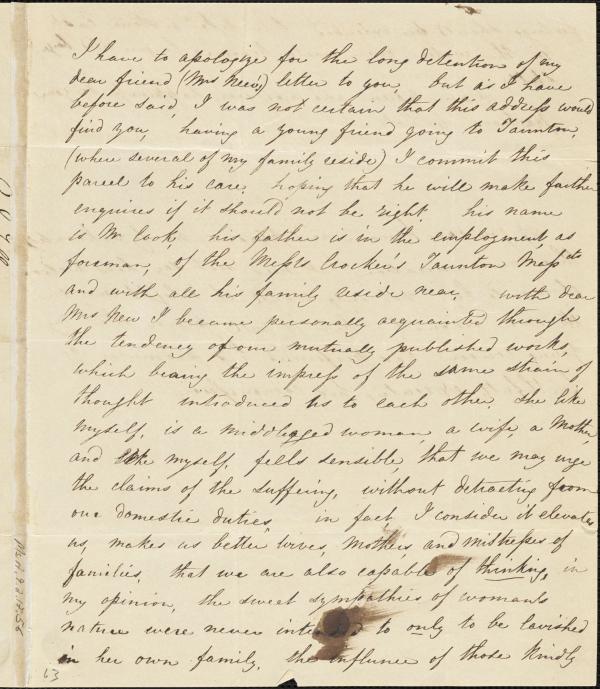 I have to apologize for the long detention of my
dear friend (Mrs New's) letter to you, but as I have
before said, I was not certain that this address would
find you, having a young friend going to Taunton,
(where several of my family reside) I commit this
parcel to his care, hoping that he will make farther
enquires if it should not be right. his name
is Mr Cook, his father is in the employment, as
foreman, of the Messrs Crocker's Taunton Massets
and with all his family reside near. with dear
Mrs New I became personally acquainted through
the tendency of our mutually published works,
which bearing the impress of the same strain of
thought introduced us to each other. She like
myself, is a middle aged woman, a wife, a Mother,
and like myself, fells sensible, that we may urge
the claims of the suffering, without detracting from
our domestic duties, in fact I consider it elevates
us, makes us better wives, Mothers and mistresses of
families, that we are also capable of thinking, in
my opinion, the sweet sympathies of woman's
nature were never intended to only to be lavished
in her own family. the influence of those kindly
63